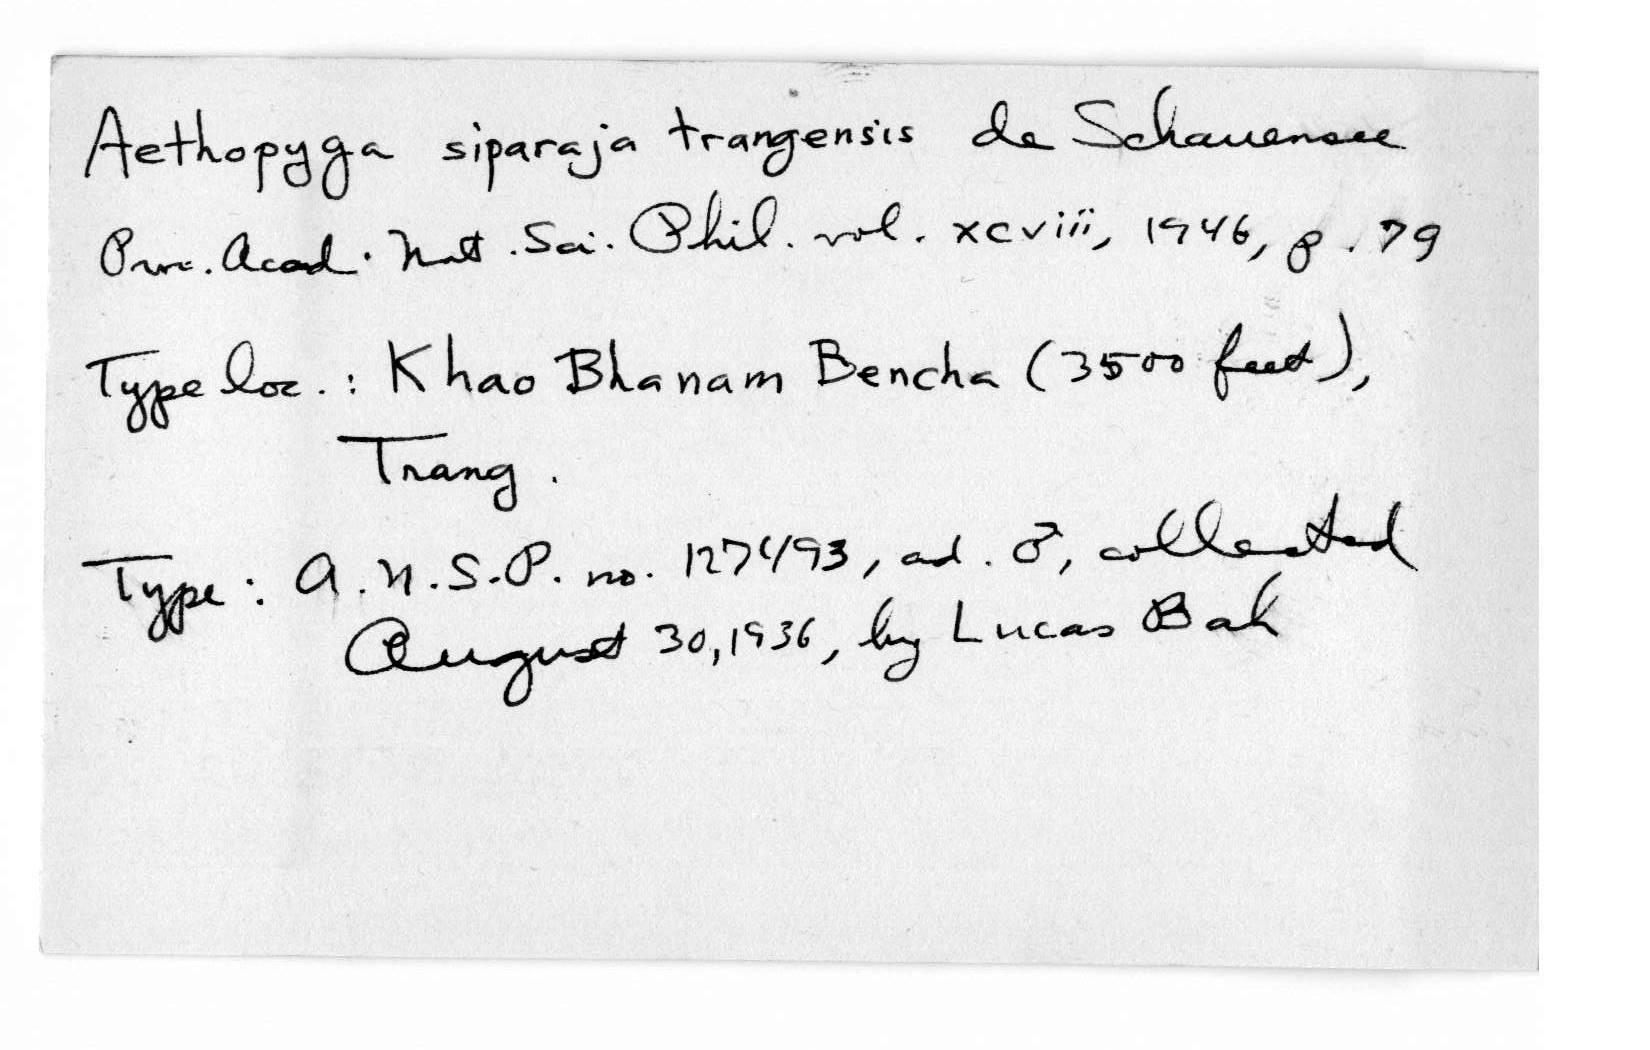 Aethopyga siparaja trangensis de Schauensee
Proc. Acad. Nat. Sci. Phil. vol. xcviii, 1946, p. 79
Type loc.: Khao Bhanam Bencha (3500 feet),
Trang.
Type: A.N.S.P. no. 127493, ad. ♂, collected
August 30, 1936, by Lucas Bah